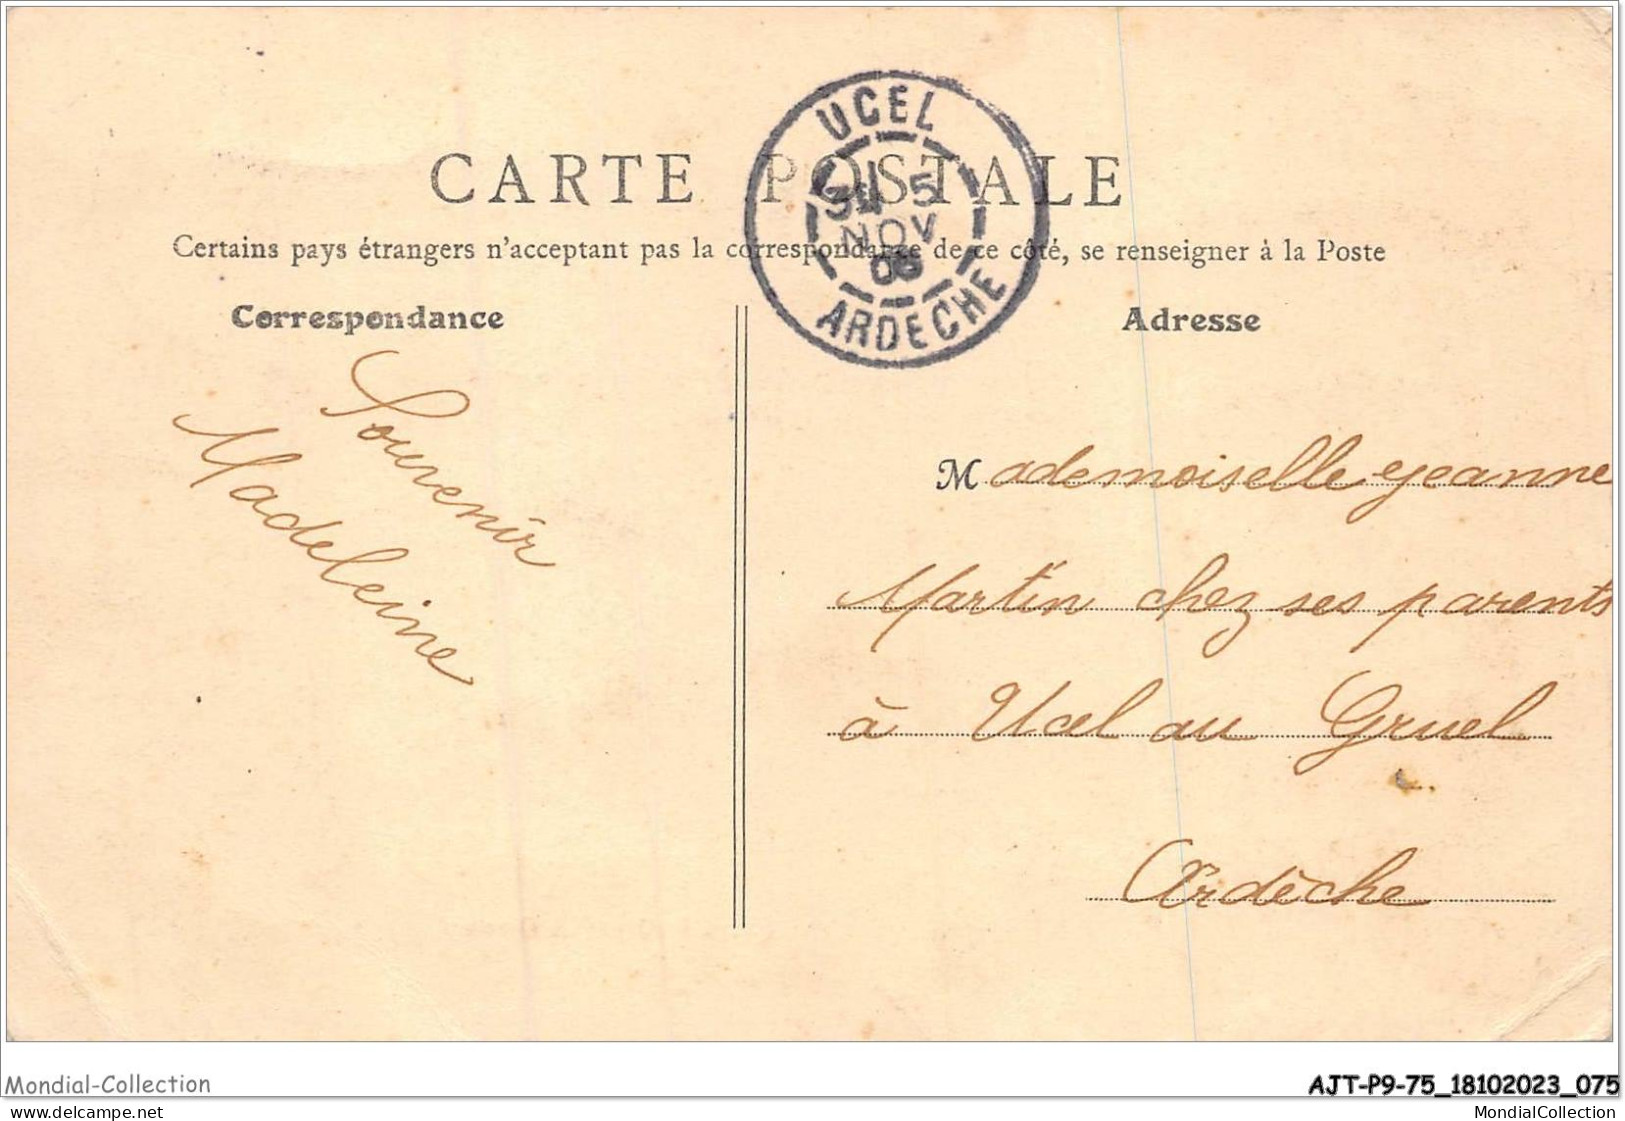 UCEL
5
NOV
ARDECHE
CARTE POSTALE
Certains pays étrangers n'acceptant pas la correspondance de ce côté, se renseigner à la Poste
Correspondance
Adresse
Souvenir
Madeleine
Mademoiselle Jeanne
Martin chez ses parents
à Ucel au Gruel
Ardèche
Mondial-Collection
AJT-P9-75_18102023_075
delcampe.net
MondialCollection